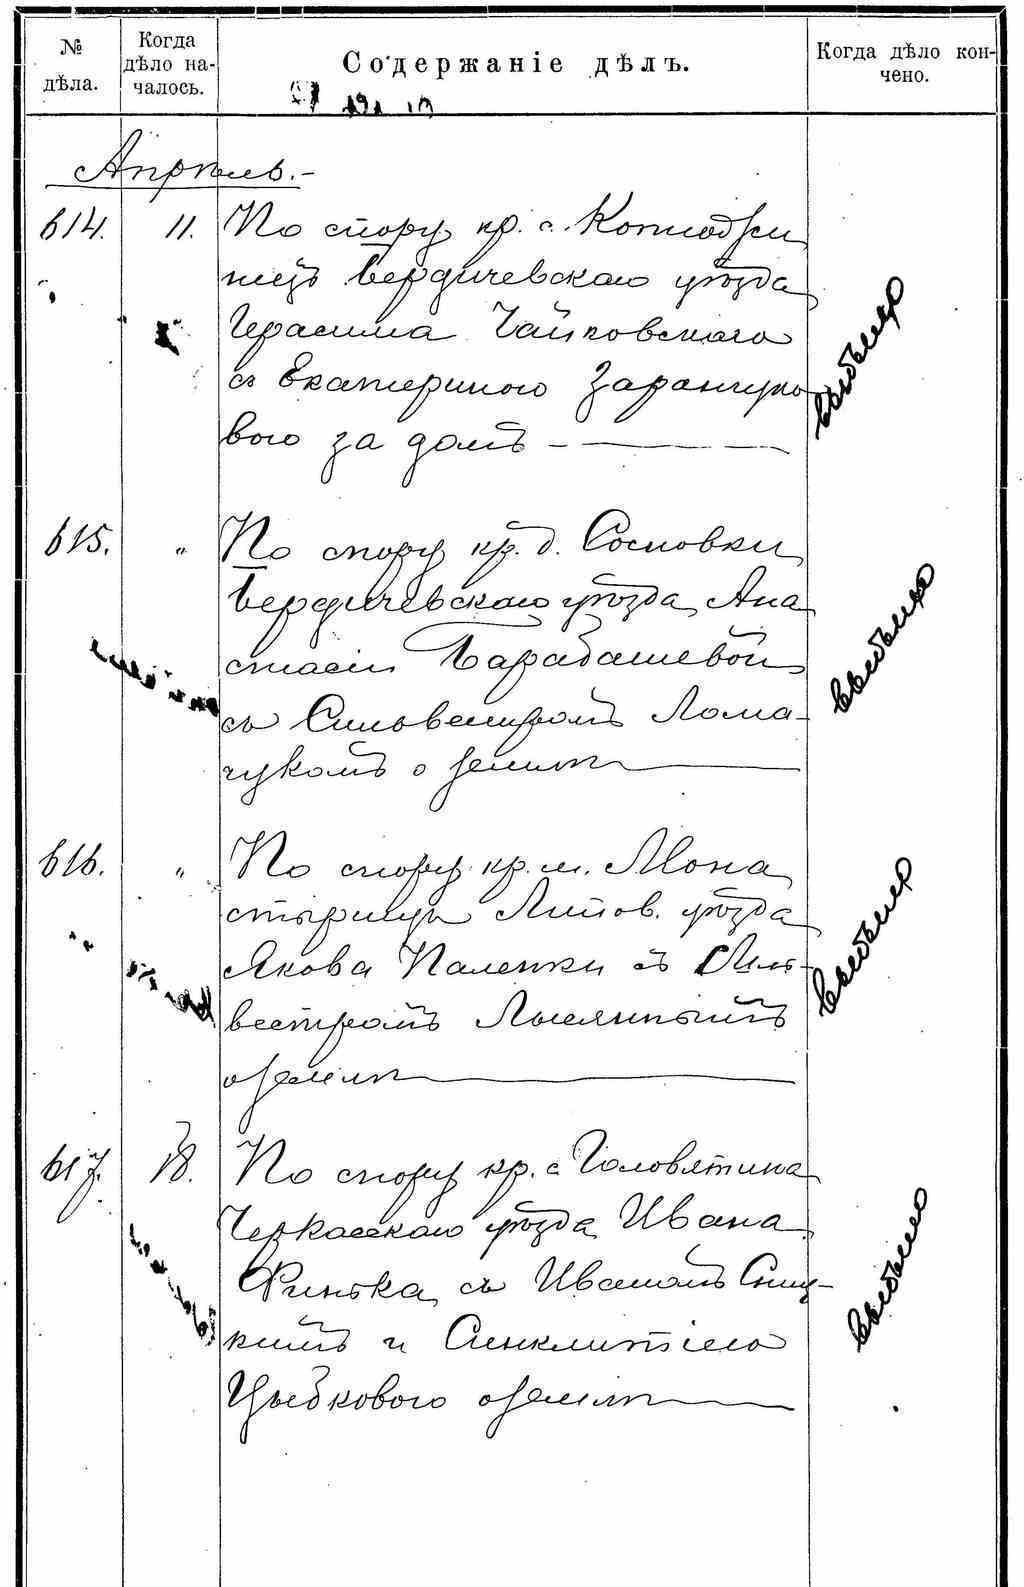 № дѣла.
Когда дѣло началось.
Содержаніе дѣлъ.
Когда дѣло кончено.
Апрѣль.-
614. 11. По спору кр. с.
нецъ Бердичевскаго уѣзда
Герасима Чайковскаго
съ Екатериною
вою за домъ - выбыло
615. " По спору кр. д. Сосновки
Бердичевскаго уѣзда Ана
стасіи Барабашевой
съ Сильвестромъ Лома-
чукомъ о землѣ выбыло
616. " По спору кр. м. Мона
стырища Липов. уѣзда
Якова Паленки съ Силь-
вестромъ
о землѣ выбыло
617. 18. По спору кр. с. Головятина
Черкасскаго уѣзда Ивана
Финька съ Иваномъ
кимъ и Синклитіею
Цыбковою о землѣ выбыло